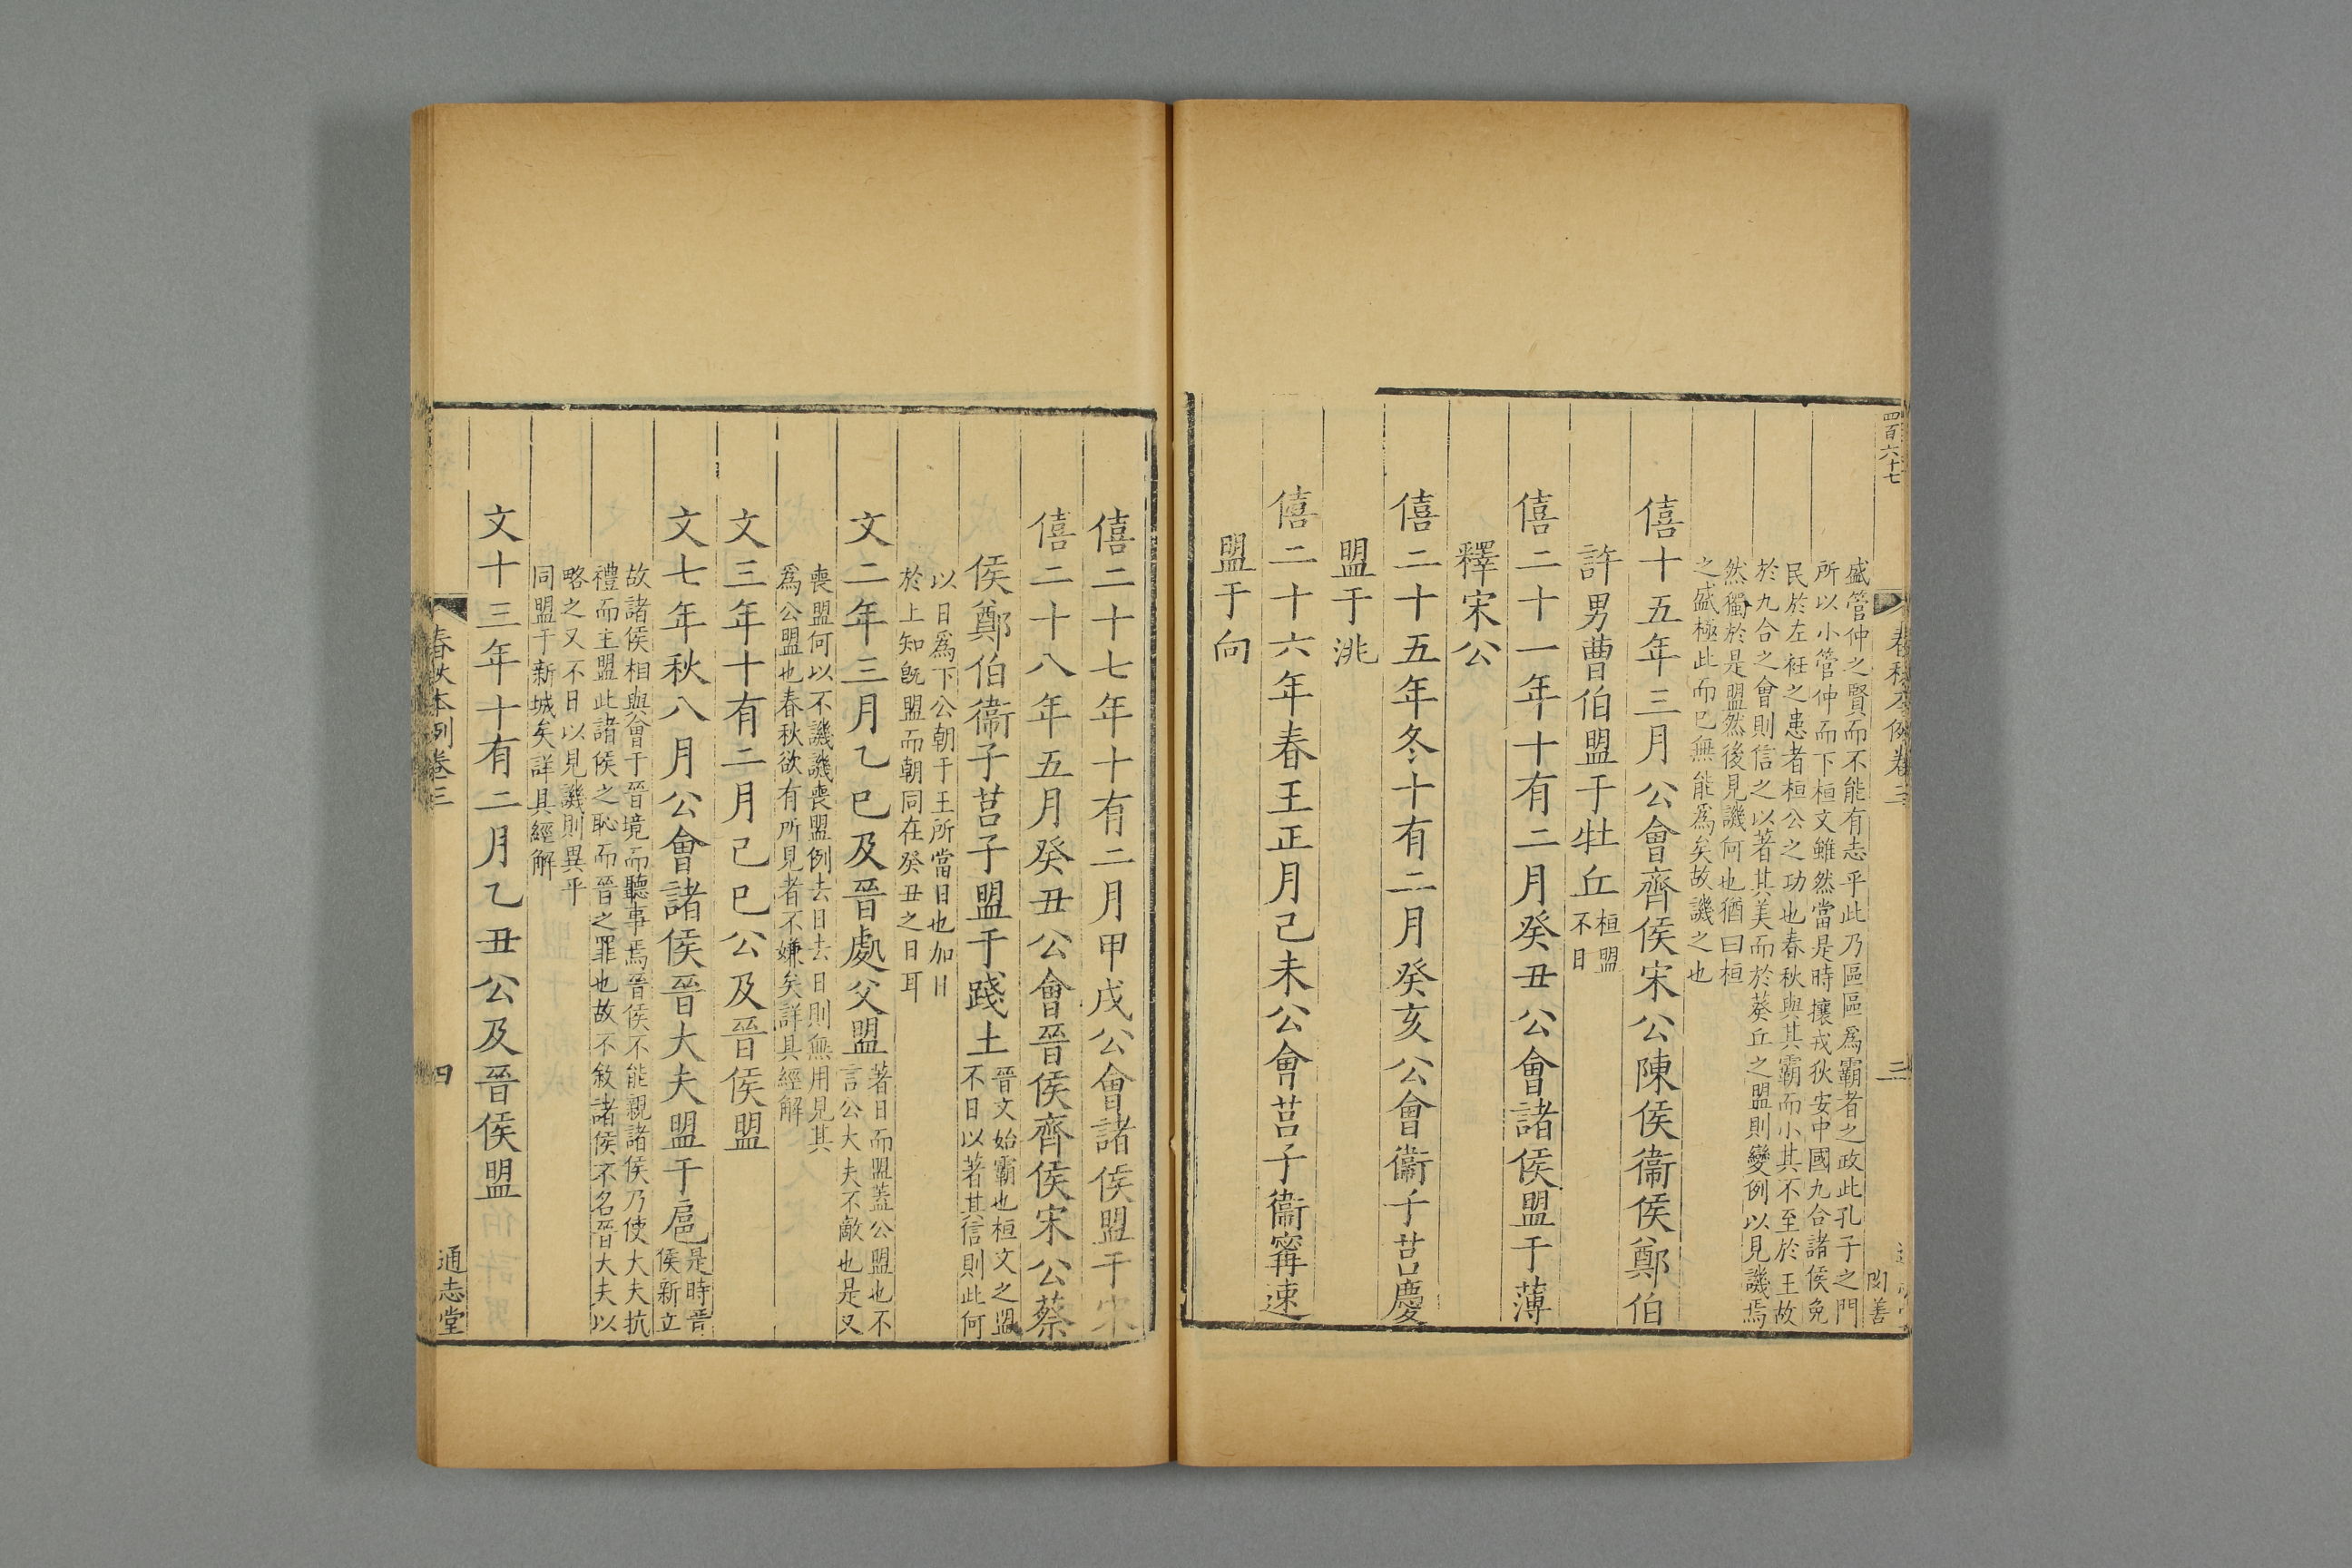 四百六十七
春秋本例卷三
三
盛管仲之賢而不能有志乎此乃區區爲霸者之政此孔子之門
所以小管仲而下桓文雖然當是時攘戎狄安中國九合諸侯免
民於左衽之患者桓公之功也春秋與其霸而小其不至於王故
於九合之會則信之以著其美而於葵丘之盟則變例以見譏焉
然獨於是盟然後見譏何也猶曰桓
之盛極此而已無能爲矣故譏之也
僖十五年三月公會齊侯宋公陳侯衞侯鄭伯
許男曹伯盟于牡丘桓盟
不日
僖二十一年十有二月癸丑公會諸侯盟于薄
釋宋公
僖二十五年冬十有二月癸亥公會衞子莒慶
盟于洮
僖二十六年春王正月己未公會莒子衞寗速
盟于向
僖二十七年十有二月甲戌公會諸侯盟于宋
僖二十八年五月癸丑公會晉侯齊侯宋公蔡
侯鄭伯衞子莒子盟于踐土晉文始霸也桓文之盟
不日以著其信則此何
以日爲下公朝于王所當日也加日
於上知旣盟而朝同在癸丑之日耳
文二年三月乙巳及晉處父盟著日而盟蓋公盟也不
言公大夫不敵也是又
喪盟何以不譏譏喪盟例去日去日則無用見其
爲公盟也春秋欲有所見者不嫌矣詳具經解
文三年十有二月己巳公及晉侯盟
文七年秋八月公會諸侯晉大夫盟于扈是時晉
侯新立
故諸侯相與會于晉境而聽事焉晉侯不能親諸侯乃使大夫抗
禮而主盟此諸侯之恥而晉之罪也故不敘諸侯不名晉大夫以
略之又不日以見譏則異乎
同盟于新城矣詳具經解
文十三年十有二月乙丑公及晉侯盟
春秋本例卷三
四
通志堂